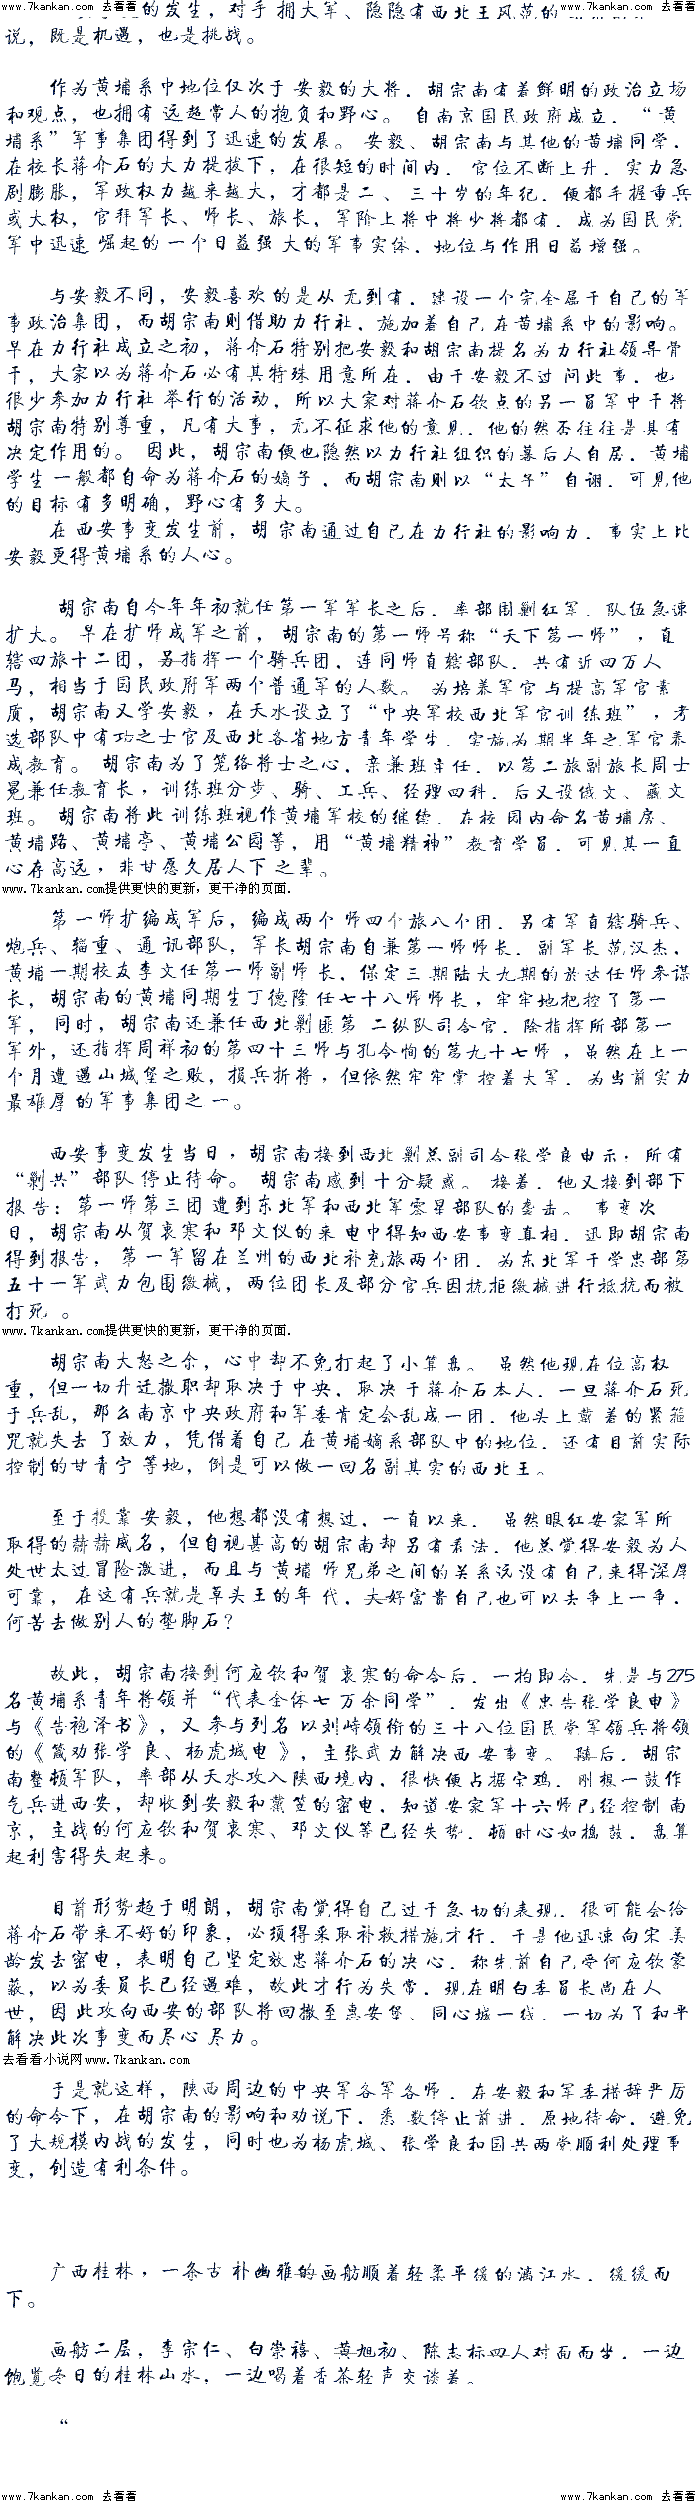 www.7kankan.com 去看看 www.7kankan.com 去看看
的发生，对手拥大军、隐隐有西北王风范的
说，既是机遇，也是挑战。
作为黄埔系中地位仅次于安毅的大将，胡宗南有着鲜明的政治立场
和观点，也拥有远超常人的抱负和野心。自南京国民政府成立，“黄
埔系”军事集团得到了迅速的发展。安毅、胡宗南与其他的黄埔同学，
在校长蒋介石的大力提拔下，在很短的时间内，官位不断上升，实力急
剧膨胀，军政权力越来越大，才都是二、三十岁的年纪，便都手握重兵
或大权，官拜军长、师长、旅长，军阶上将中将少将都有，成为国民党
军中迅速崛起的一个日益强大的军事实体，地位与作用日益增强。
与安毅不同，安毅喜欢的是从无到有，建设一个完全属于自己的军
事政治集团，而胡宗南则借助力行社，施加着自己在黄埔系中的影响。
早在力行社成立之初，蒋介石特别把安毅和胡宗南提名为力行社领导骨
干，大家以为蒋介石必有其特殊用意所在，由于安毅不过问此事，也
很少参加力行社举行的活动，所以大家对蒋介石钦点的另一员军中干将
胡宗南特别尊重，凡有大事，无不征求他的意见，他的然否往往是具有
决定作用的。因此，胡宗南便也隐然以力行社组织的幕后人自居，黄埔
学生一般都自命为蒋介石的嫡子，而胡宗南则以“太子”自诩，可见他
的目标有多明确，野心有多大。
在西安事变发生前，胡宗南通过自己在力行社的影响力，事实上比
安毅更得黄埔系的人心。
胡宗南自今年年初就任第一军军长之后，率部围剿红军，队伍急速
扩大。早在扩师成军之前，胡宗南的第一师号称“天下第一师”，直
辖四旅十二团，另指挥一个骑兵团，连同师直辖部队，共有近四万人
马，相当于国民政府军两个普通军的人数。为培养军官与提高军官素
质，胡宗南又学安毅，在天水设立了“中央军校西北军官训练班”，考
选部队中有功之士官及西北各省地方青年学生，实施为期半年之军官养
成教育。胡宗南为了笼络将士之心，亲兼班主任，以第二旅副旅长周士
冕兼任教育长，训练班分步、骑、工兵、经理四科，后又设俄文、藏文
班。胡宗南将此训练班视作黄埔军校的继续，在校园内命名黄埔房、
黄埔路、黄埔亭、黄埔公园等，用“黄埔精神”教育学员，可见其一直
心存高远，非甘愿久居人下之辈。
www.7kankan.com提供更快的更新，更干净的页面.
第一师扩编成军后，编成两个师四个旅八个团，另有军直辖骑兵、
炮兵、辎重、通讯部队，军长胡宗南自兼第一师师长，副军长范汉杰，
黄埔一期校友李文任第一师副师长，保定三期陆大九期的於达任师参谋
长，胡宗南的黄埔同期生丁德隆任七十八师师长，牢牢地把控了第一
军，同时，胡宗南还兼任西北剿匪第二纵队司令官，除指挥所部第一
军外，还指挥周祥初的第四十三师与孔令恂的第九十七师，虽然在上一
个月遭遇山城堡之败，损兵折将，但依然牢牢掌控着大军，为当前实力
最雄厚的军事集团之一。
西安事变发生当日，胡宗南接到西北剿总副司令张学良电示：所有
“剿共”部队停止待命。胡宗南感到十分疑惑。接着，他又接到部下
报告：第一师第三团遭到东北军和西北军零星部队的袭击。事变次
日，胡宗南从贺衷寒和邓文仪的来电中得知西安事变真相，迅即胡宗南
得到报告，第一军留在兰州的西北补充旅两个团，为东北军于学忠部第
五十一军武力包围缴械，两位团长及部分官兵因抗拒缴械进行抵抗而被
打死。
www.7kankan.com提供更快的更新，更干净的页面.
胡宗南大怒之余，心中却不免打起了小算盘。虽然他现在位高权
重，但一切升迁撤职却取决于中央，取决于蒋介石本人，一旦蒋介石死
于兵乱，那么南京中央政府和军委肯定会乱成一团，他头上戴着的紧箍
咒就失去了效力，凭借着自己在黄埔嫡系部队中的地位，还有目前实际
控制的甘青宁等地，倒是可以做一回名副其实的西北王。
至于投靠安毅，他想都没有想过，一直以来，虽然眼红安家军所
取得的赫赫威名，但自视甚高的胡宗南却另有看法，他总觉得安毅为人
处世太过冒险激进，而且与黄埔师兄弟之间的关系远没有自己来得深厚
可靠，在这有兵就是草头王的年代，大好富贵自己也可以去争上一争，
何苦去做别人的垫脚石？
故此，胡宗南接到何应钦和贺衷寒的命令后，一拍即合，先是与275
名黄埔系青年将领并“代表全体七万余同学”，发出《忠告张学良电》
与《告袍泽书》，又参与列名以刘峙领衔的三十八位国民党军领兵将领
的《箴劝张学良、杨虎城电》，主张武力解决西安事变。随后，胡宗
南整顿军队，率部从天水攻入陕西境内，很快便占据宝鸡，刚想一鼓作
气兵进西安，却收到安毅和戴笠的密电，知道安家军十六师已经控制南
京，主战的何应钦和贺衷寒、邓文仪等已经失势，顿时心如捣鼓，盘算
起利害得失起来。
目前形势趋于明朗，胡宗南觉得自己过于急切的表现，很可能会给
蒋介石带来不好的印象，必须得采取补救措施才行，于是他迅速向宋美
龄发去密电，表明自己坚定效忠蒋介石的决心，称先前自己受何应钦蒙
蔽，以为委员长已经遇难，故此才行为失常，现在明白委员长尚在人
世，因此攻向西安的部队将回撤至惠安堡、同心城一线，一切为了和平
解决此次事变而尽心尽力。
去看看小说网www.7kankan.com
于是就这样，陕西周边的中央军各军各师，在安毅和军委措辞严厉
的命令下，在胡宗南的影响和劝说下，悉数停止前进，原地待命，避免
了大规模内战的发生，同时也为杨虎城、张学良和国共两党顺利处理事
变，创造有利条件。
广西桂林，一条古朴幽雅的画舫顺着轻柔平缓的漓江水，缓缓而
下。
画舫二层，李宗仁、白崇禧、黄旭初、陈志标四人对面而坐，一边
饱览冬日的桂林山水，一边喝着香茶轻声交谈着。
“
www.7kankan.com 去看看 www.7kankan.com 去看看